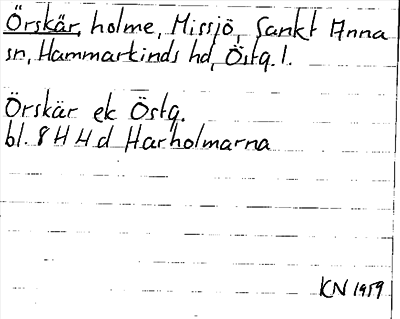 Örskär, holme, Missjö, Sankt Anna
sn, Hammarkinds hd, Östg. l.
Örskär ek Östg.
bl. 8 H H d Harholmarna
KN 1959